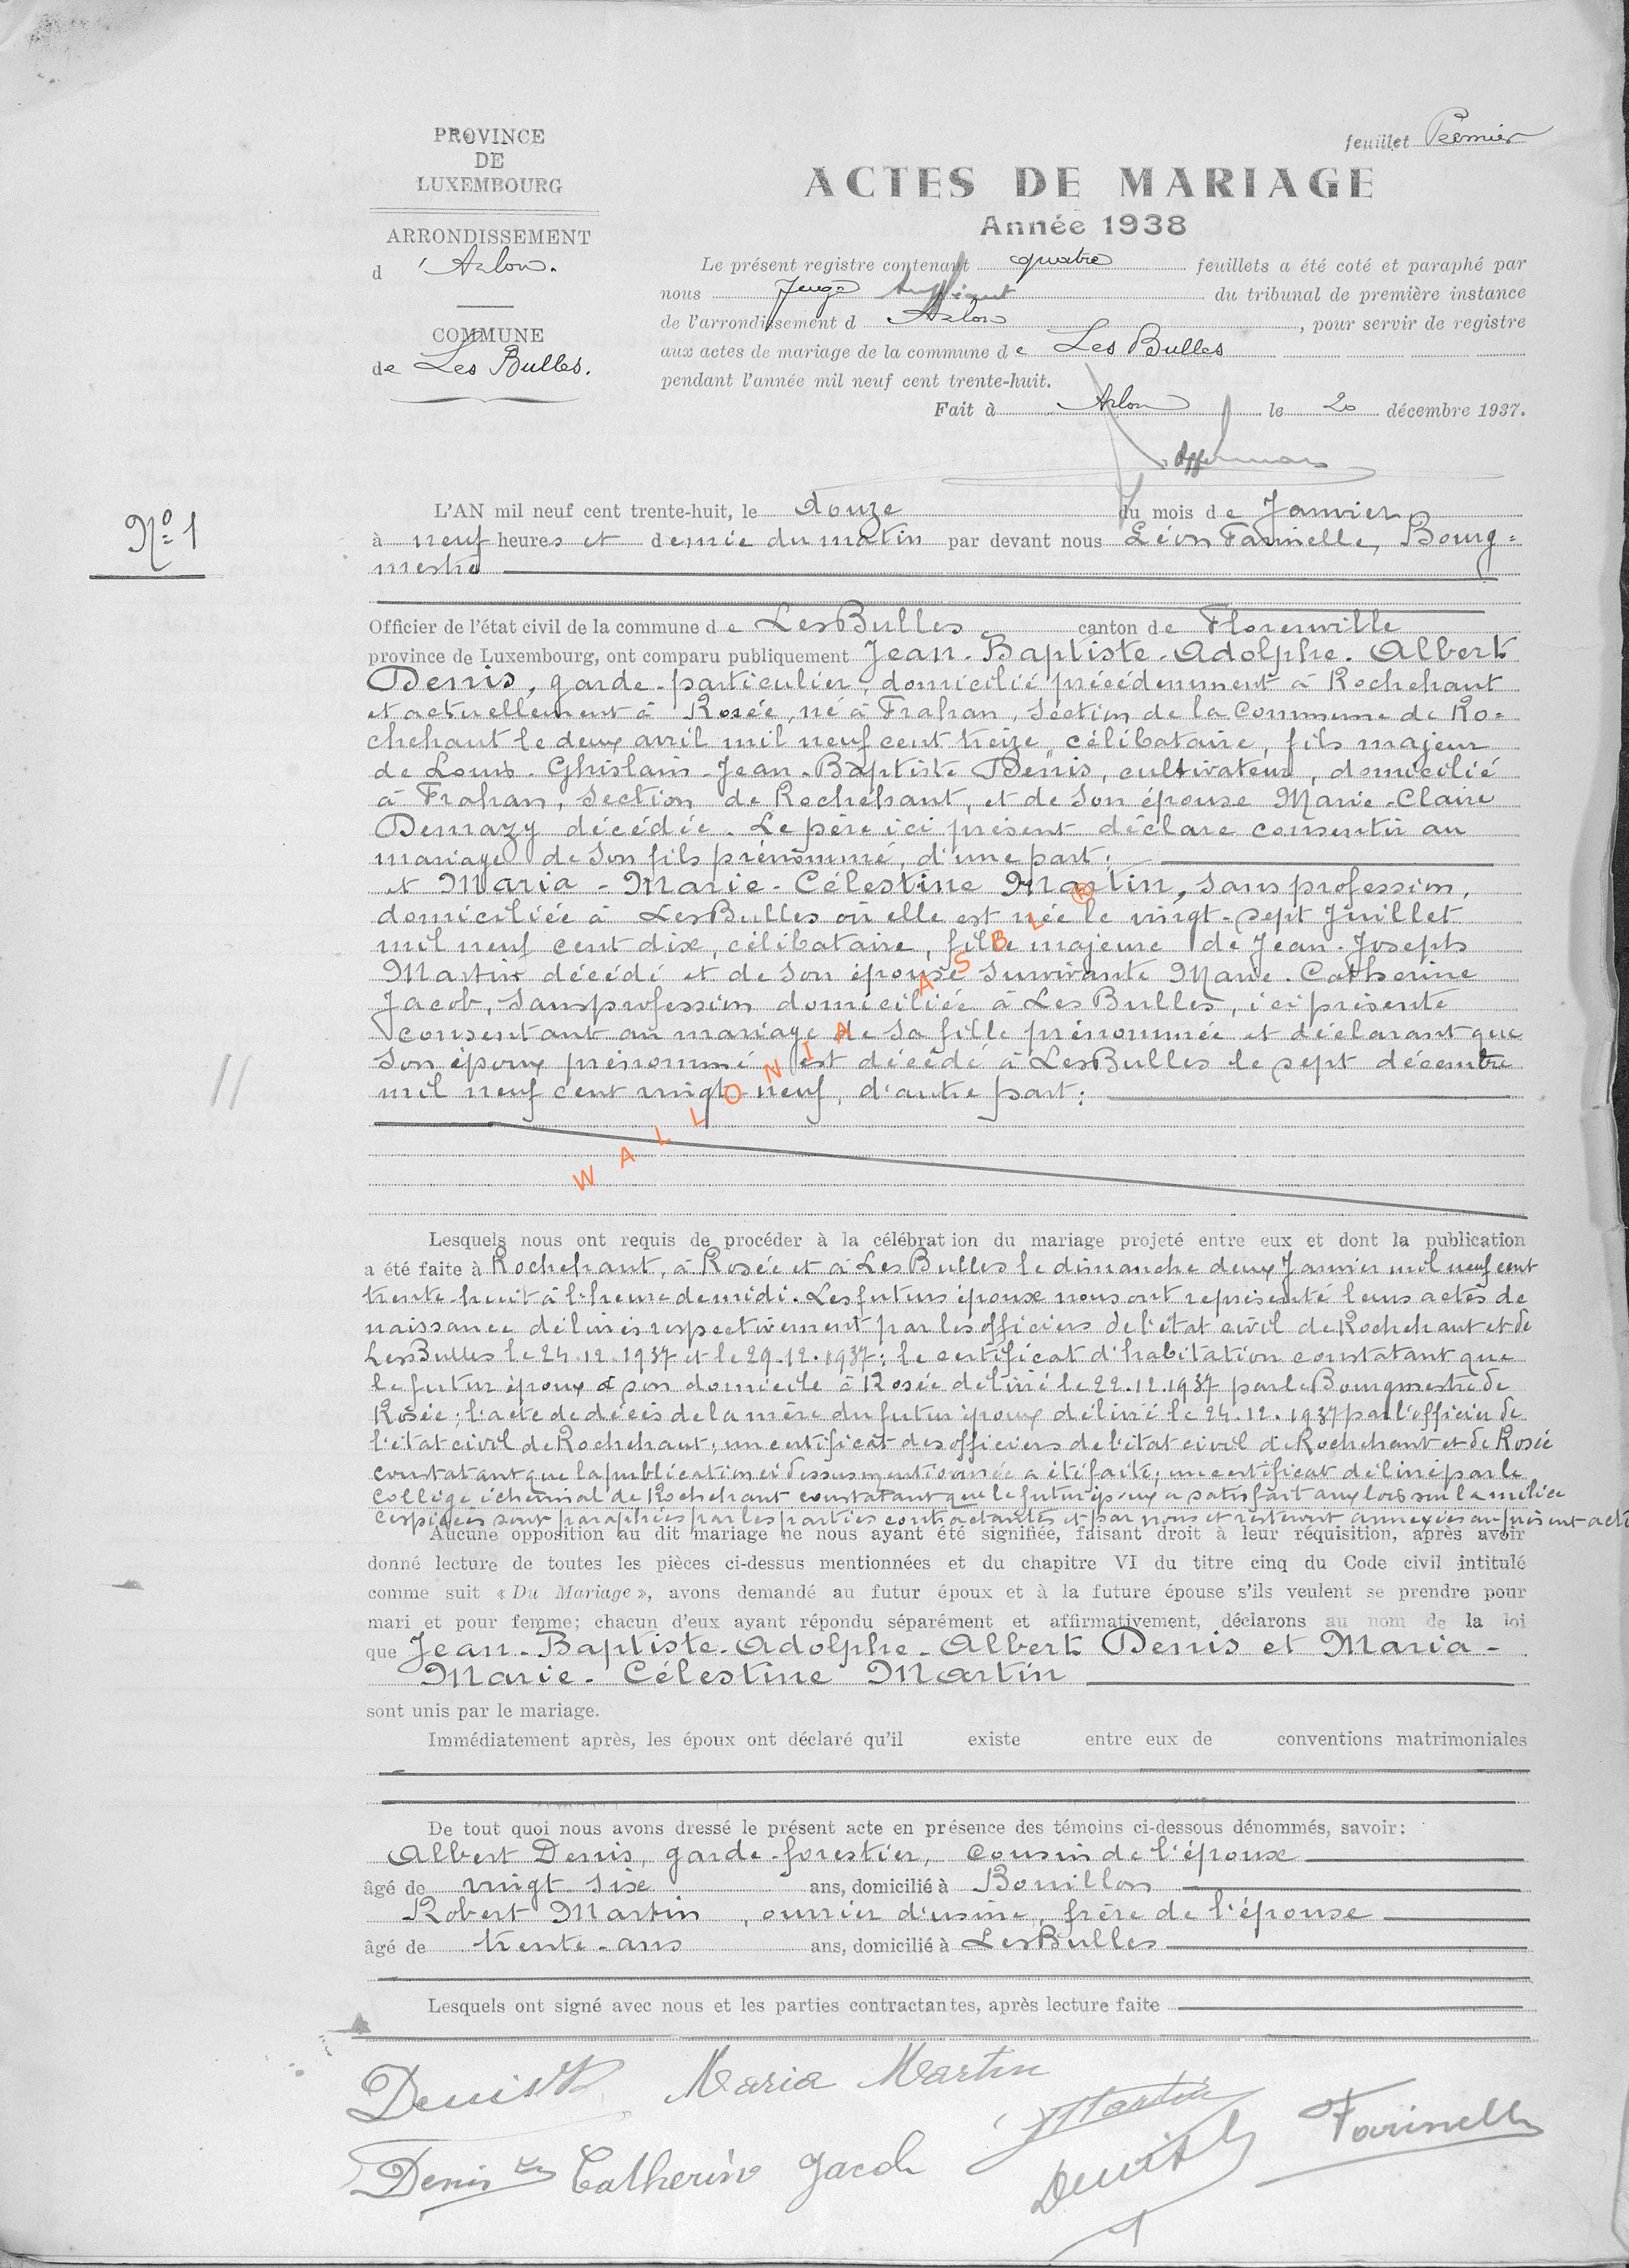 feuillet Premier
PROVINCE
DE
LUXEMBOURG
ACTES DE MARIAGE
Année 1938
ARRONDISSEMENT
d'Arlon.
COMMUNE
de Les Bulles.
Le présent registre contenant quatre feuillets a été coté et paraphé par
nous Juge suppléant du tribunal de première instance
de l'arrondissement d Arlon, pour servir de registre
aux actes de mariage de la commune de Les Bulles
pendant l'année mil neuf cent trente-huit.
Fait à Arlon le 20 décembre 1937.
No 1
L'AN mil neuf cent trente-huit, le douze du mois de Janvier
à neuf heures et demie du matin par devant nous Léon Farinelle, Bourg=
mestre
Officier de l'état civil de la commune de Les Bulles canton de Florenville
province de Luxembourg, ont comparu publiquement Jean-Baptiste-Adolphe-Albert
Denis, garde-particulier, domicilié précédemment à Rochehaut
et actuellement à Rosée, né à Frahan, section de la Commune de Ro=
chehaut le deux avril mil neuf cent treize, célibataire, fils majeur
de Louis-Ghislain-Jean-Baptiste Denis, cultivateur, domicilié
à Frahan, section de Rochehaut, et de son épouse Marie-Claire
Demazy décédée. Le père ici présent déclare consentir au
mariage de son fils prénommé, d'une part;
et Maria-Marie-Célestine Martin, sans profession,
domiciliée à Les Bulles où elle est née le vingt-sept Juillet
mil neuf cent dix, célibataire, fille majeure de Jean-Joseph
Martin décédé et de son épouse survivante Marie-Catherine
Jacob, sans profession domiciliée à Les Bulles, ici présente
consentant au mariage de sa fille prénommée et déclarant que
son époux prénommé est décédé à Les Bulles le sept décembre
mil neuf cent vingt-neuf, d'autre part;
WALLONIA ASBL ®
Lesquels nous ont requis de procéder à la célébration du mariage projeté entre eux et dont la publication
a été faite à Rochehaut, à Rosée et à Les Bulles le dimanche deux Janvier mil neuf cent
trente-huit à l'heure de midi. Les futurs époux nous ont représenté leurs actes de
naissance délivrés respectivement par les officiers de l'état civil de Rochehaut et de
Les Bulles le 24.12.1937 et le 29.12.1937; le certificat d'habitation constatant que
le futur époux a son domicile à Rosée délivré le 22.12.1937 par le Bourgmestre de
Rosée; l'acte de décès de la mère du futur époux délivré le 24.12.1937 par l'officier de
l'état civil de Rochehaut; un certificat des officiers de l'état civil de Rochehaut et de Rosée
constatant que la publication ci dessus mentionnée a été faite; un certificat délivré par le
Collège échevinal de Rochehaut constatant que le futur époux a satisfait aux lois sur la milice
Ces pièces sont paraphées par les parties contractantes et par nous et resteront annexées au présent acte
Aucune opposition au dit mariage ne nous ayant été signifiée, faisant droit à leur réquisition, après avoir
donné lecture de toutes les pièces ci-dessus mentionnées et du chapitre VI du titre cinq du Code civil intitulé
comme suit « Du Mariage », avons demandé au futur époux et à la future épouse s'ils veulent se prendre pour
mari et pour femme; chacun d'eux ayant répondu séparément et affirmativement, déclarons au nom de la loi
que Jean-Baptiste-Adolphe-Albert Denis et Maria-
Marie-Célestine Martin
sont unis par le mariage.
Immédiatement après, les époux ont déclaré qu'il existe entre eux de conventions matrimoniales
De tout quoi nous avons dressé le présent acte en présence des témoins ci-dessous dénommés, savoir:
Albert Denis, garde-forestier, cousin de l'époux
âgé de vingt six ans, domicilié à Bouillon
Robert Martin, ouvrier d'usine, frère de l'épouse
âgé de trente-ans ans, domicilié à Les Bulles
Lesquels ont signé avec nous et les parties contractantes, après lecture faite
Denis Maria Martin
Martin
Farinelle
Denis Catherine Jacob
Denis